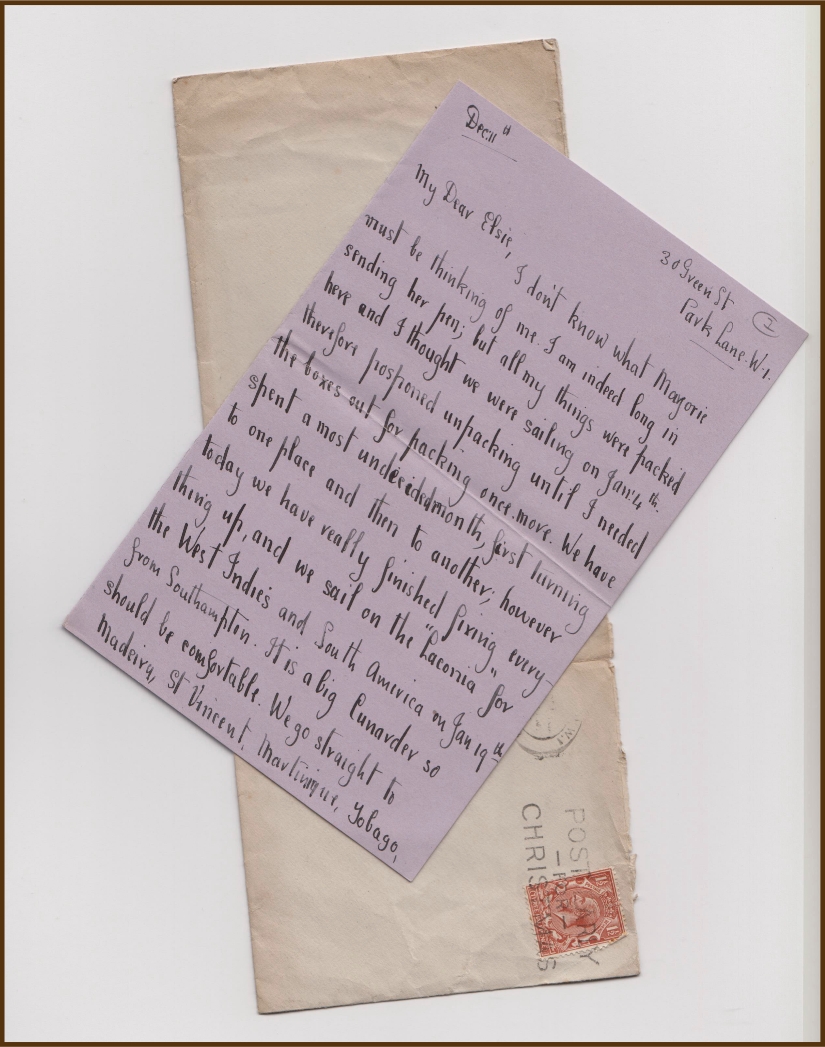 Dec 11th
30 Green St
Park Lane. W.1.
I
My Dear Elsie,
I don't know what Marjorie
must be thinking of me. I am indeed long in
sending her pen; but all my things were packed
here and I thought we were sailing on Jan 4th.
therefore posponed unpacking until I needed
the boxes out for packing once more. We have
spent a most undecided month, first turning
to one place and then to another; however
today we have really finished fixing every-
thing up, and we sail on the "Laconia" for
the West Indies and South America on Jan 19th
from Southampton. It is a big Cunarder so
should be comfortable. We go straight to
Madeira, St Vincent, Martinique, Tobago,
POST EARLY
CHRISTMAS
1½ 1½